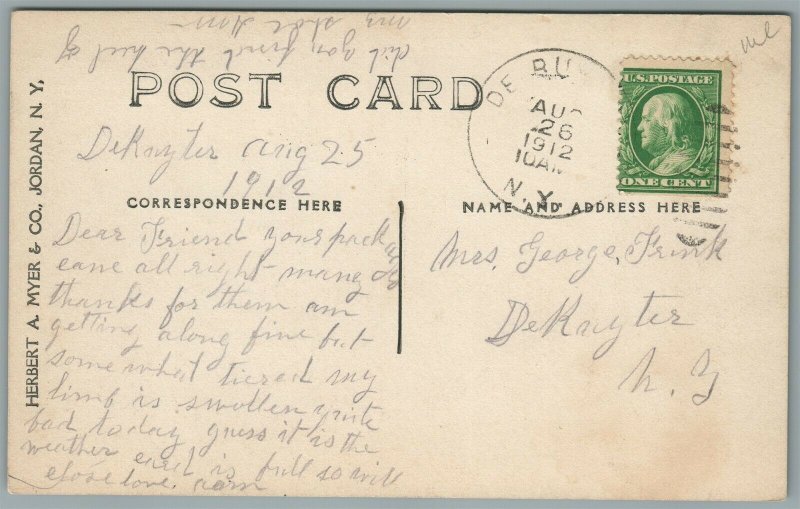 did you find the heel of
mrs shoe
POST CARD
DE RU
AUG
26
1912
10 AM
N.Y.
U.S. POSTAGE
ONE CENT
HERBERT A. MYER & CO., JORDAN, N. Y.
CORRESPONDENCE HERE
NAME AND ADDRESS HERE
DeRuyter Aug 25
1912
Dear Friend your pack
came all right many
thanks for them am
getting along fine but
some what tiered my
limb is swollen quite
bad today guess it is the
weather card is full so will
close love
Mrs. George, Frink
DeRuyter
N. Y